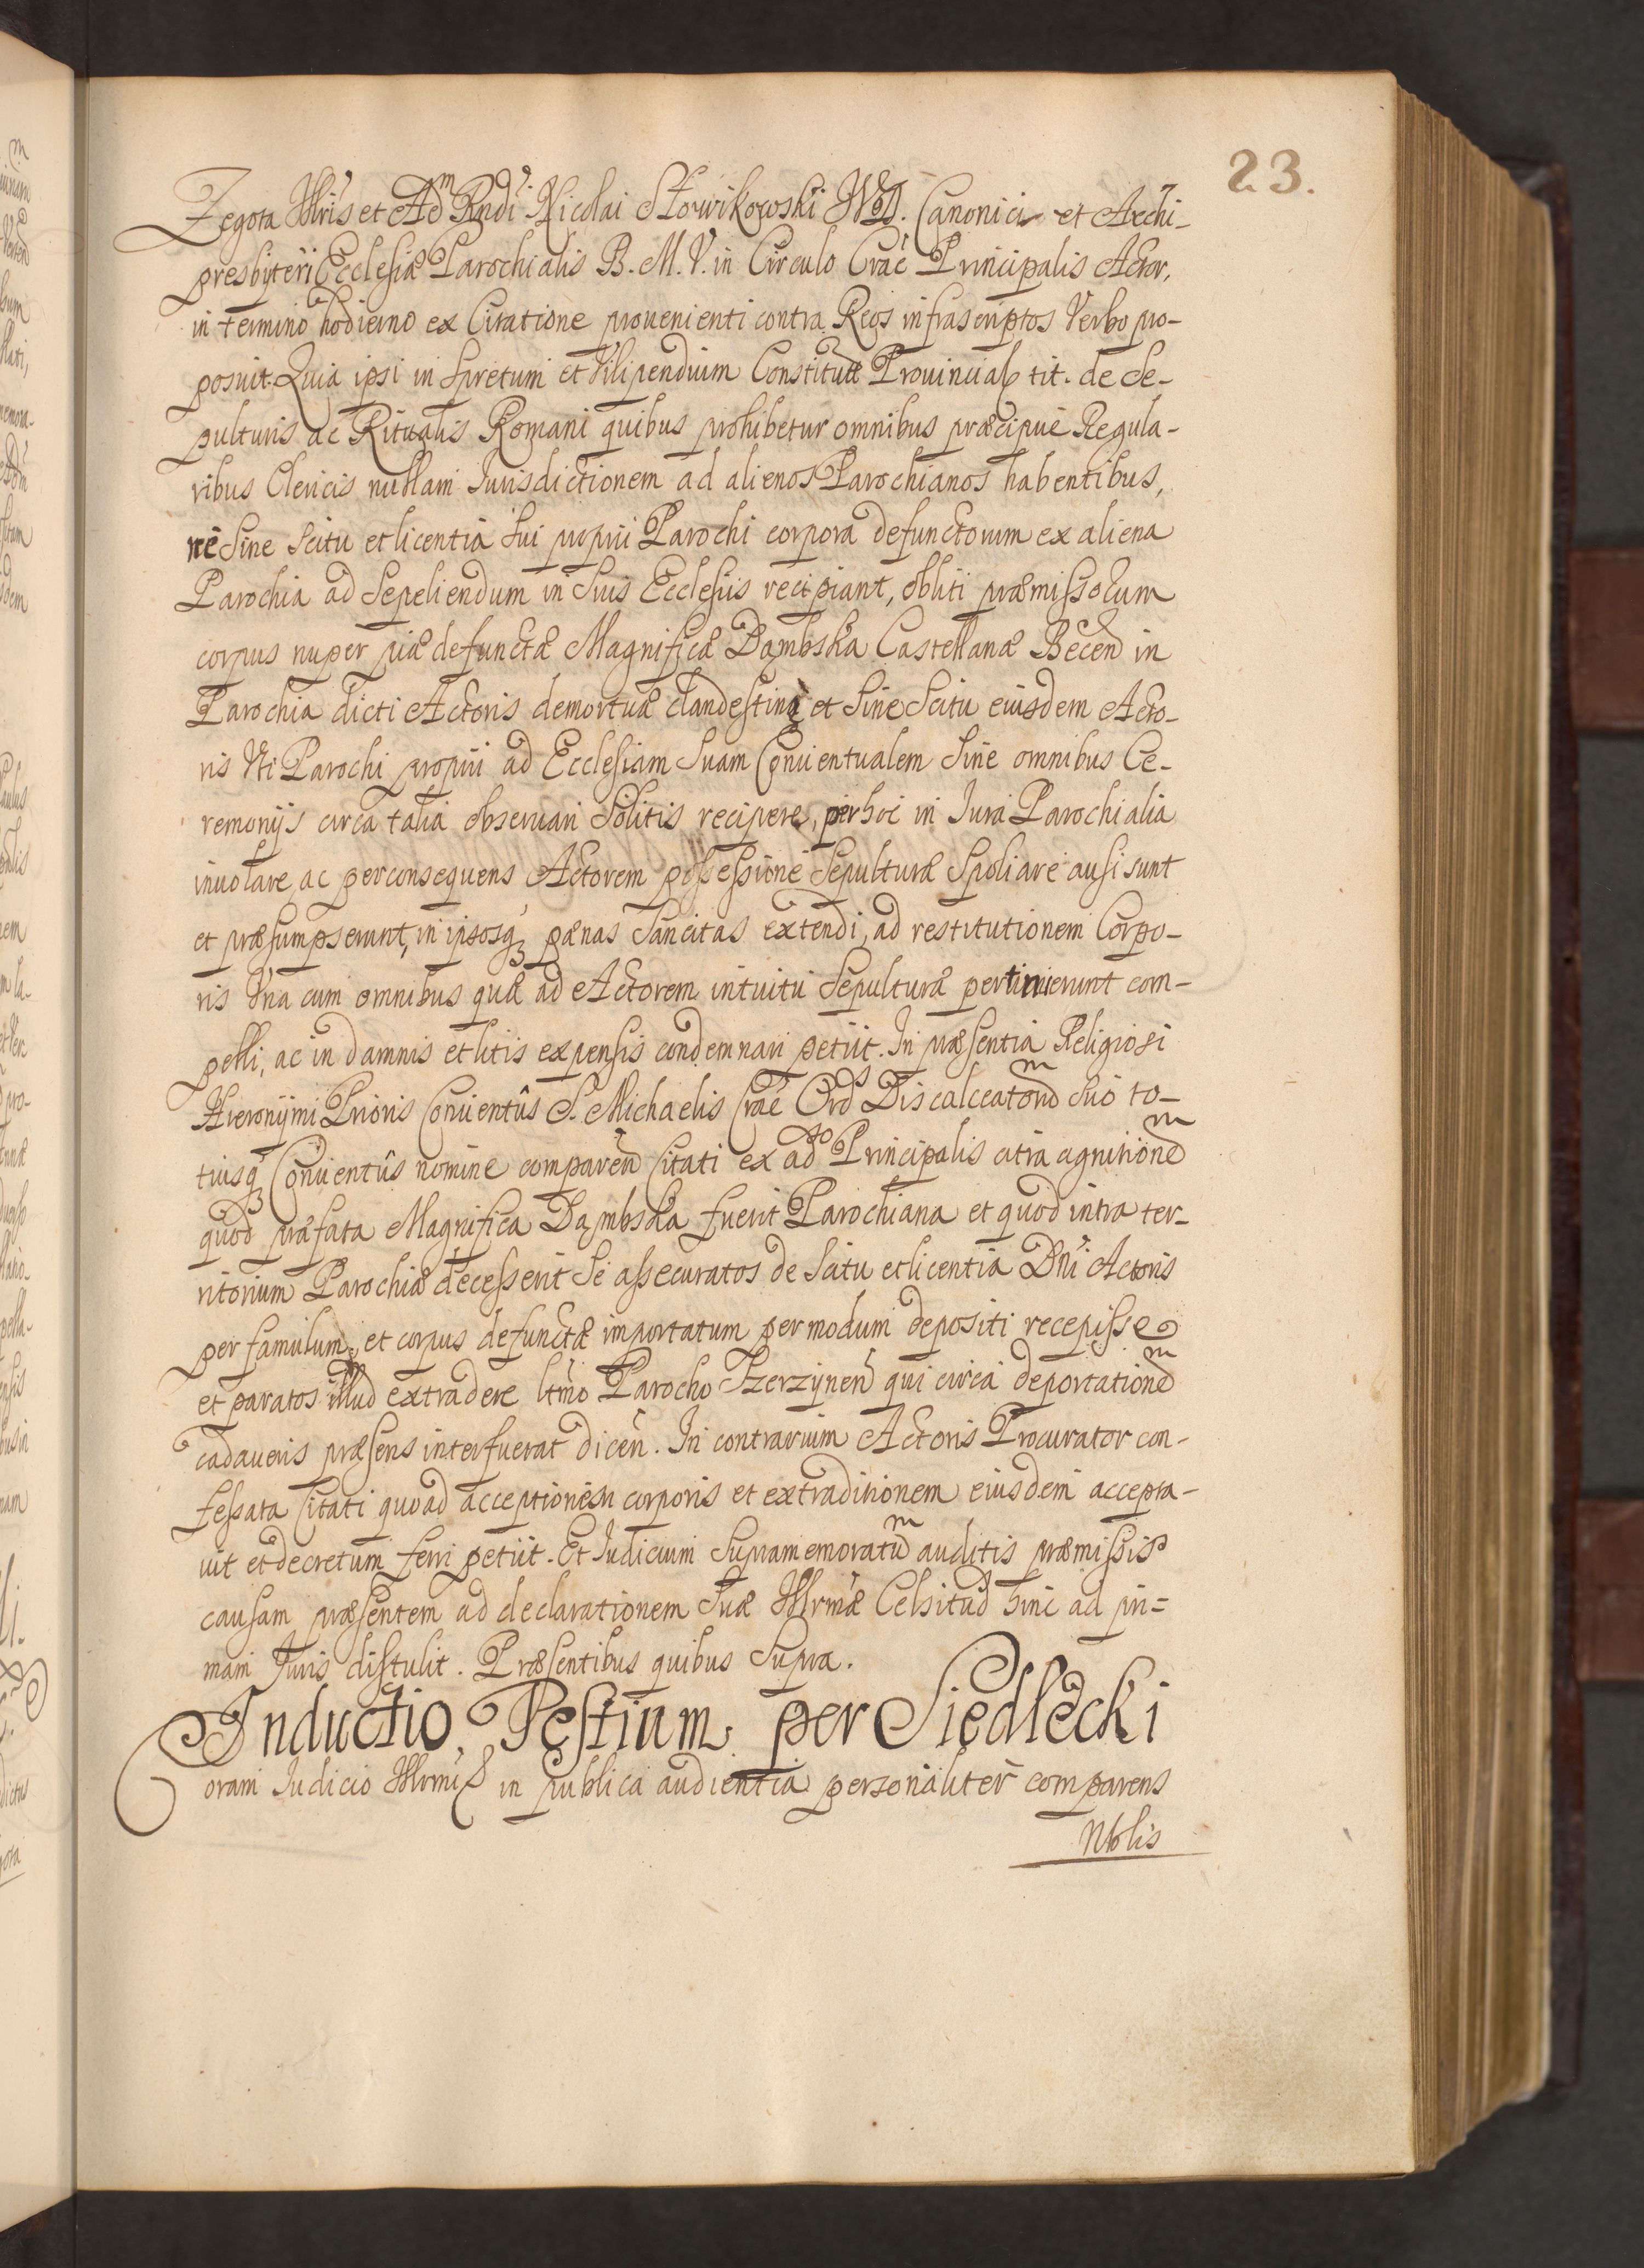 23.
Zegota Illris et Adm Rndi Nicolai Słowikowski IVD. Canonici et Archi-
presbyteri Ecclesiæ Parochialis B. M. V. in Circulo Crac Principalis Actor,
in termino hodierno ex Citatione provenienti contra Reos infrascriptos Verbo pro-
posuit. Quia ipsi in Spretum et Vilipendium Constitutt Provincial tit. de Se-
pulturis ac Ritualis Romani quibus prohibetur omnibus præcipue Regula-
ribus Clericis nullam Iurisdictionem ad alienos Parochianos habentibus,
ne Sine Scitu et licentia Sui proprii Parochi corpora defunctorum ex aliena
Parochia ad Sepeliendum in Suis Ecclesiis recipiant, obliti præmissorum
corpus nuper piæ defunctæ Magnificæ Dąmbska Castellanæ Becen in
Parochia dicti Actoris demortuæ clandestine et Sine Scitu eiusdem Acto-
ris Uti Parochi proprii ad Ecclesiam Suam Conventualem Sine omnibus Ce-
remoniis circa talia observari Solitis recipere, per hoc in Iura Parochialia
involare, ac per consequens Actorem possessione Sepulturæ Spoliare ausi sunt
et præsumpserunt, in ipsosq pænas Sancitas extendi, ad restitutionem Corpo-
ris Una cum omnibus quæ ad Actorem intuitu Sepulturæ pertinuerunt com-
pelli, ac in damnis et litis expensis condemnari petiit. In præsentia Religiosi
Hieronymi Prioris Conventûs S. Michaelis Crac Ord Discalceatorum Suo to-
tiusq Conventûs nomine comparen Citati ex adto Principalis citra agnitionem
quod præfata Magnifica Dąmbska fuerit Parochiana et quod intra ter-
ritorium Parochiæ decesserit Se assecuratos de Scitu et licentia Dni Actoris
per famulum, et corpus defunctæ importatum per modum depositi recepisse
et paratos illud extradere ltmo Parocho Szerzynen qui circa deportationem
cadaveris præsens interfuerat dicen. In contrarium Actoris Procurator con-
fessata Citati quoad acceptionem corporis et extraditionem eiusdem accepta-
vit et decretum ferri petiit. Et Iudicium Supramemoratum auditis præmissis
causam præsentem ad declarationem Suæ Illrmæ Celsitud hinc ad pri=
mam Iuris distulit. Præsentibus quibus Supra.
Inductio Testium per Siedlecki
Coram Iudicio Illrmi in publica audientia personaliter comparens
Nblis